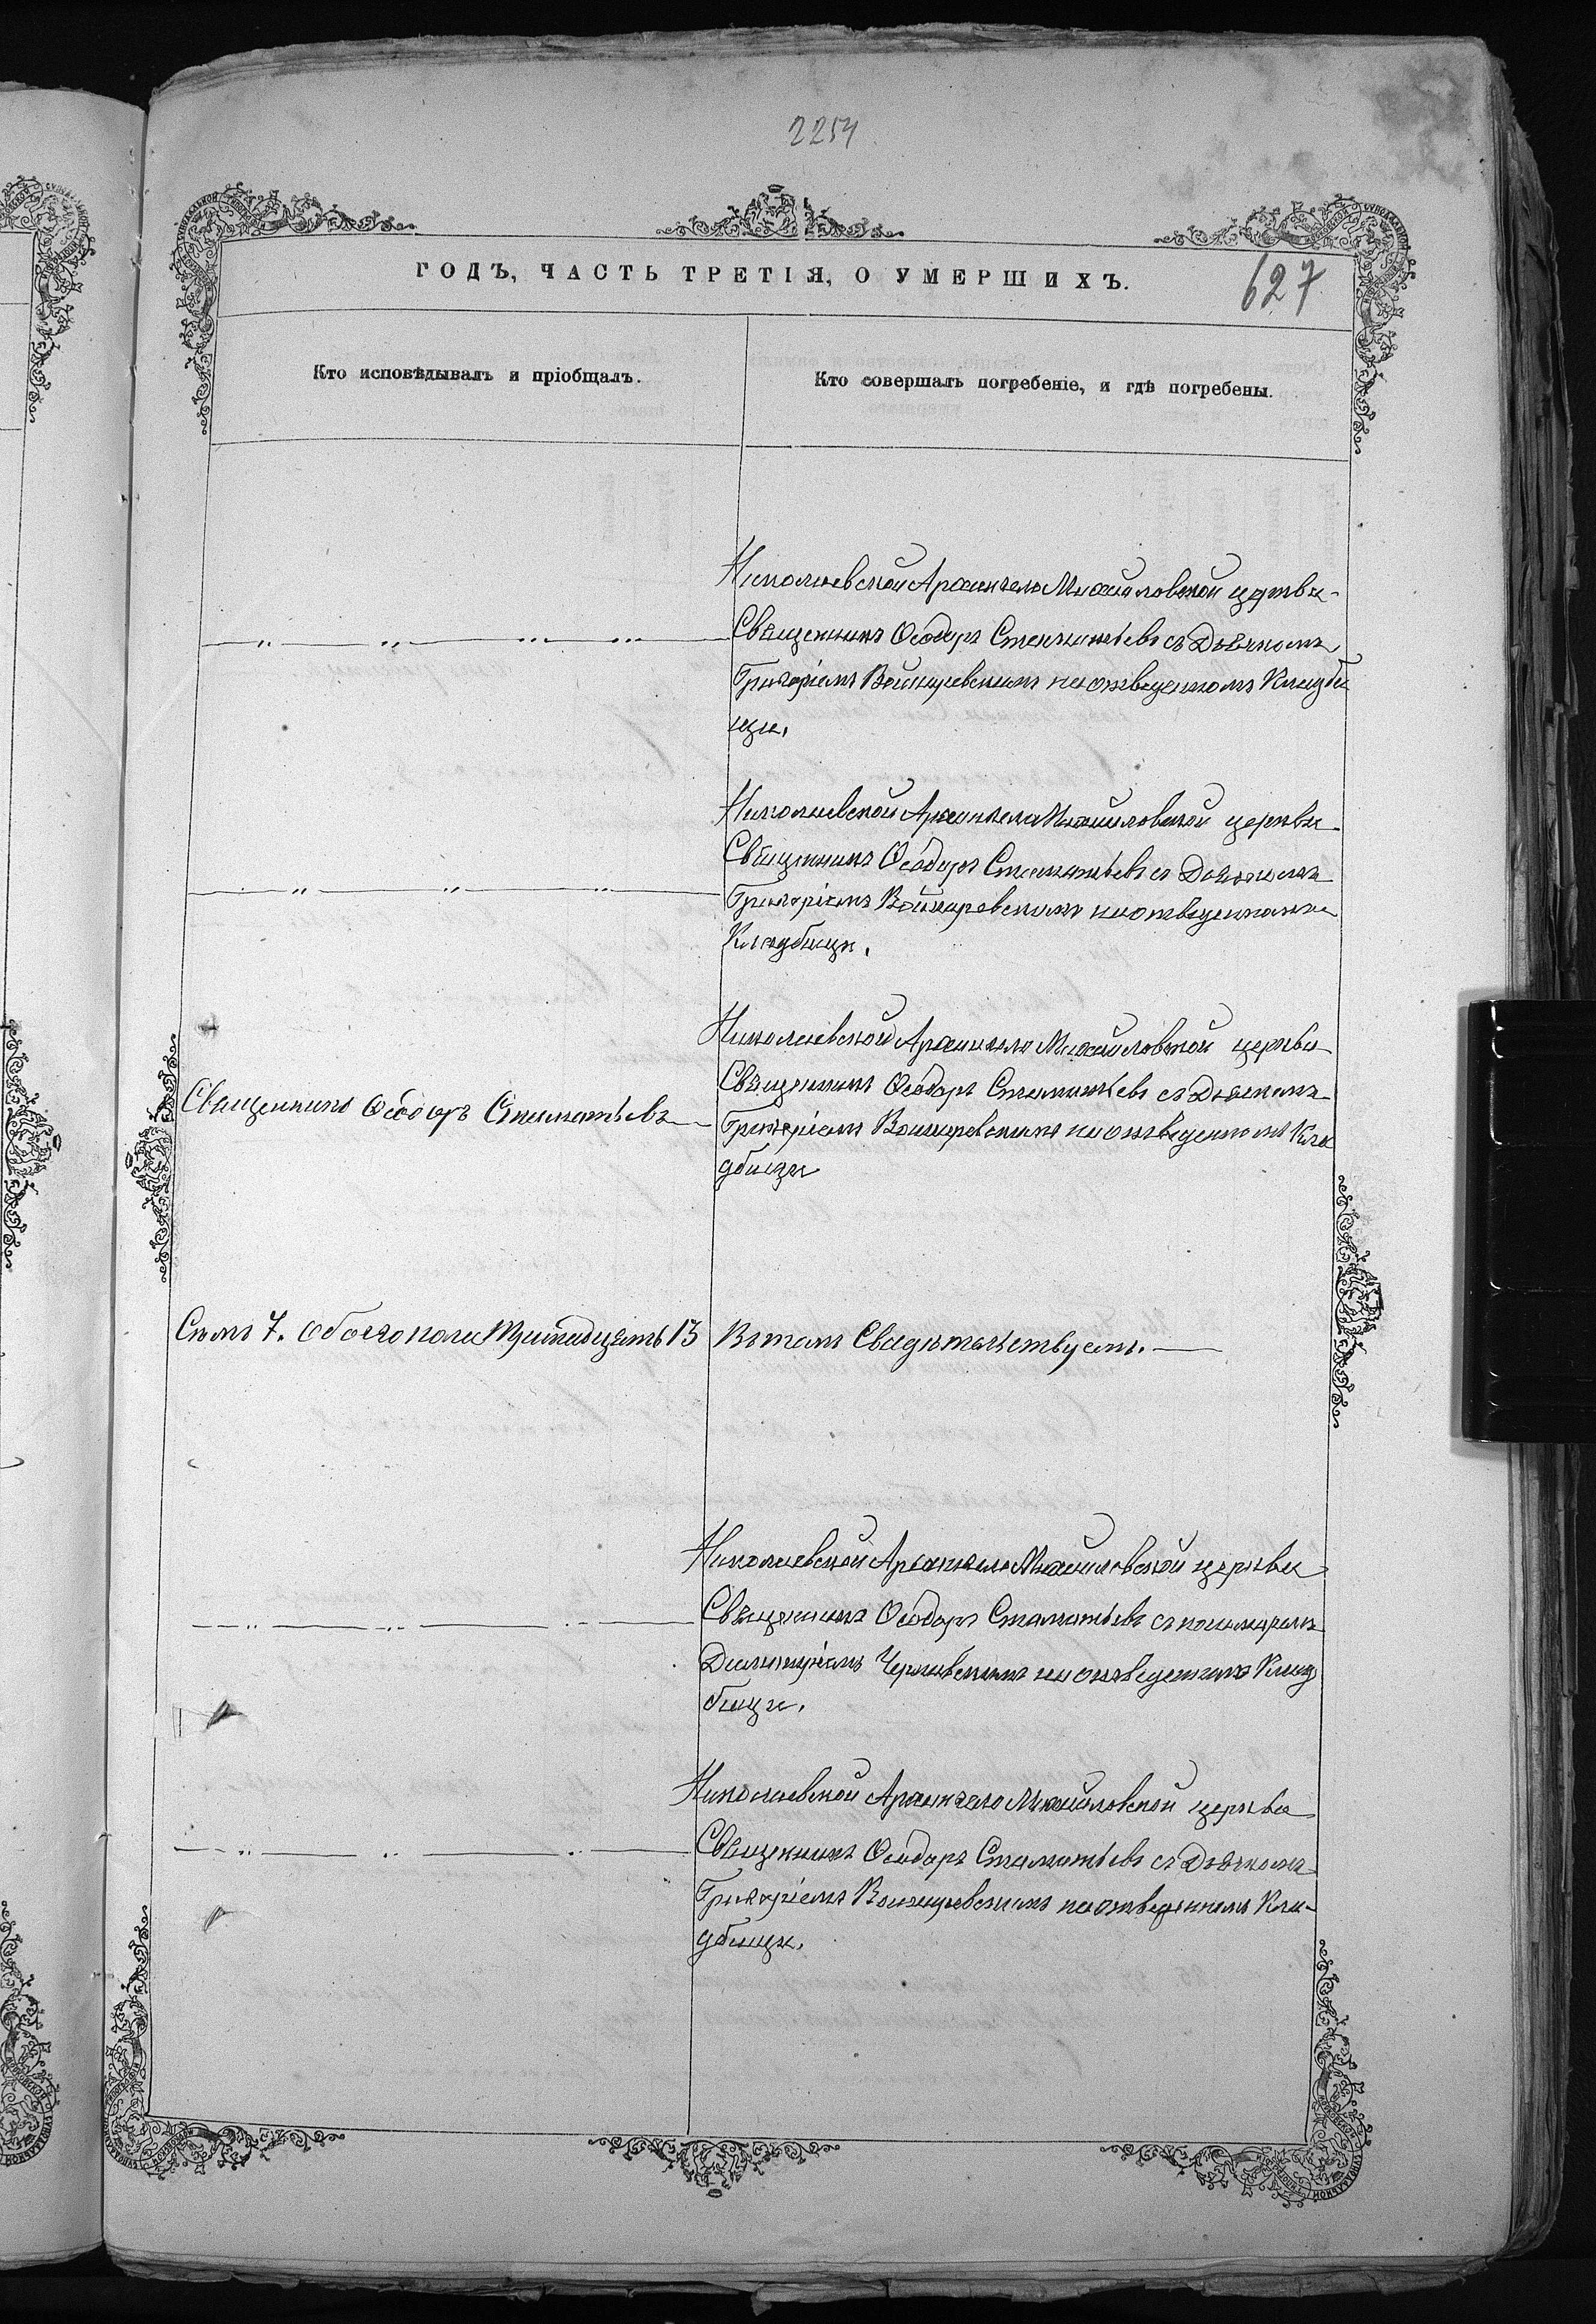 2254
ГОДЪ, ЧАСТЬ ТРЕТІЯ, О УМЕРШИХЪ.
627
Кто исповѣдывалъ и пріобщалъ.
Кто совершалъ погребеніе, и гдѣ погребены.
Николаевской Архангело Михайловской церкви
Священникъ Ѳеодоръ Стаматьевъ съ Дьячкомъ
Григоріемъ Войнаревскимъ на отведенномъ Кладби
щи.
Николаевской Архангело Михайловской церкви
Священникъ Ѳеодоръ Стаматьевъ съ Дьячкомъ
Григоріемъ Войнаревскимъ на отведенномъ
Кладбищи.
Николаевской Архангело Михайловской церкви
Священникъ Ѳеодоръ Стаматьевъ
Священникъ Ѳеодоръ Стаматьевъ съ Дьячкомъ
Григоріемъ Войнаревскимъ на отведенномъ Кла
дбищи
Семь 7. Обоего пола Тринадцать 13
Въ томъ Свидѣтельствуемъ.
Николаевской Архангело Михайловской церкви
Священникъ Ѳеодоръ Стаматьевъ съ
Димитріемъ на отведенномъ Клад
бищи.
Николаевской Архангело Михайловской церкви
Священникъ Ѳеодоръ Стаматьевъ съ Дьячкомъ
Григоріемъ Войнаревскимъ на отведенномъ Кла-
дбищи.